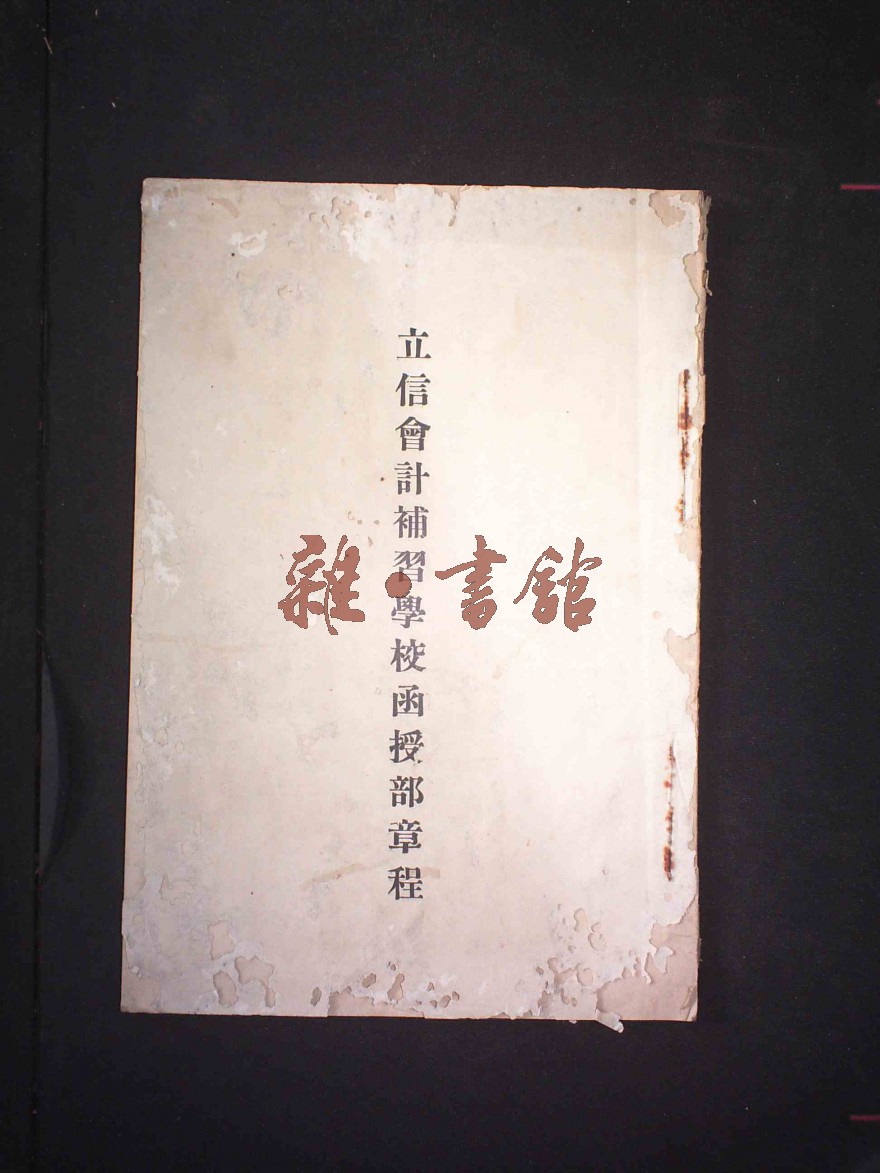 立信會計補習學校函授部章程
雜·書館